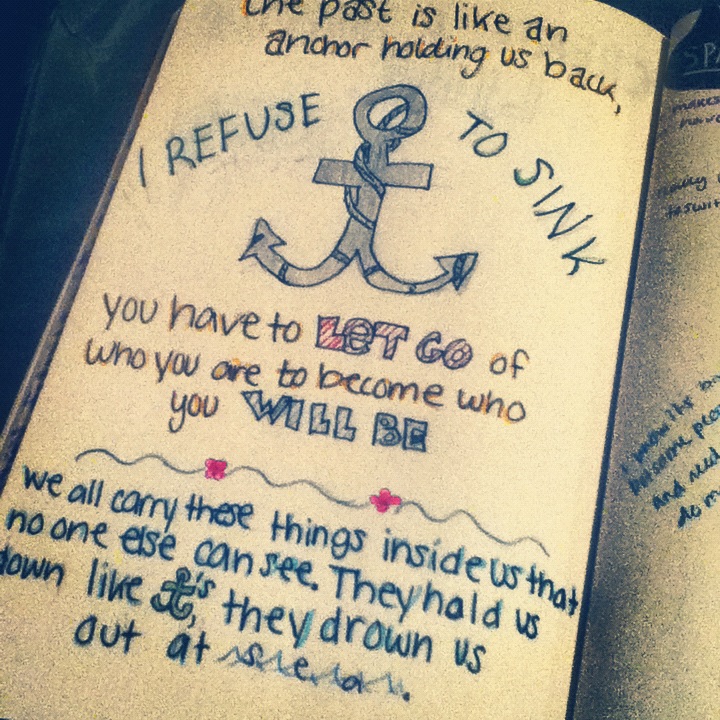 the past is like an
anchor holding us back,
I REFUSE TO SINK
you have to LET GO of
who you are to become who
you WILL BE
we all carry these things inside us that
no one else can see. They hold us
down like 's, they drown us
out at sea.
SPA
makes
have
I know its
and need
do